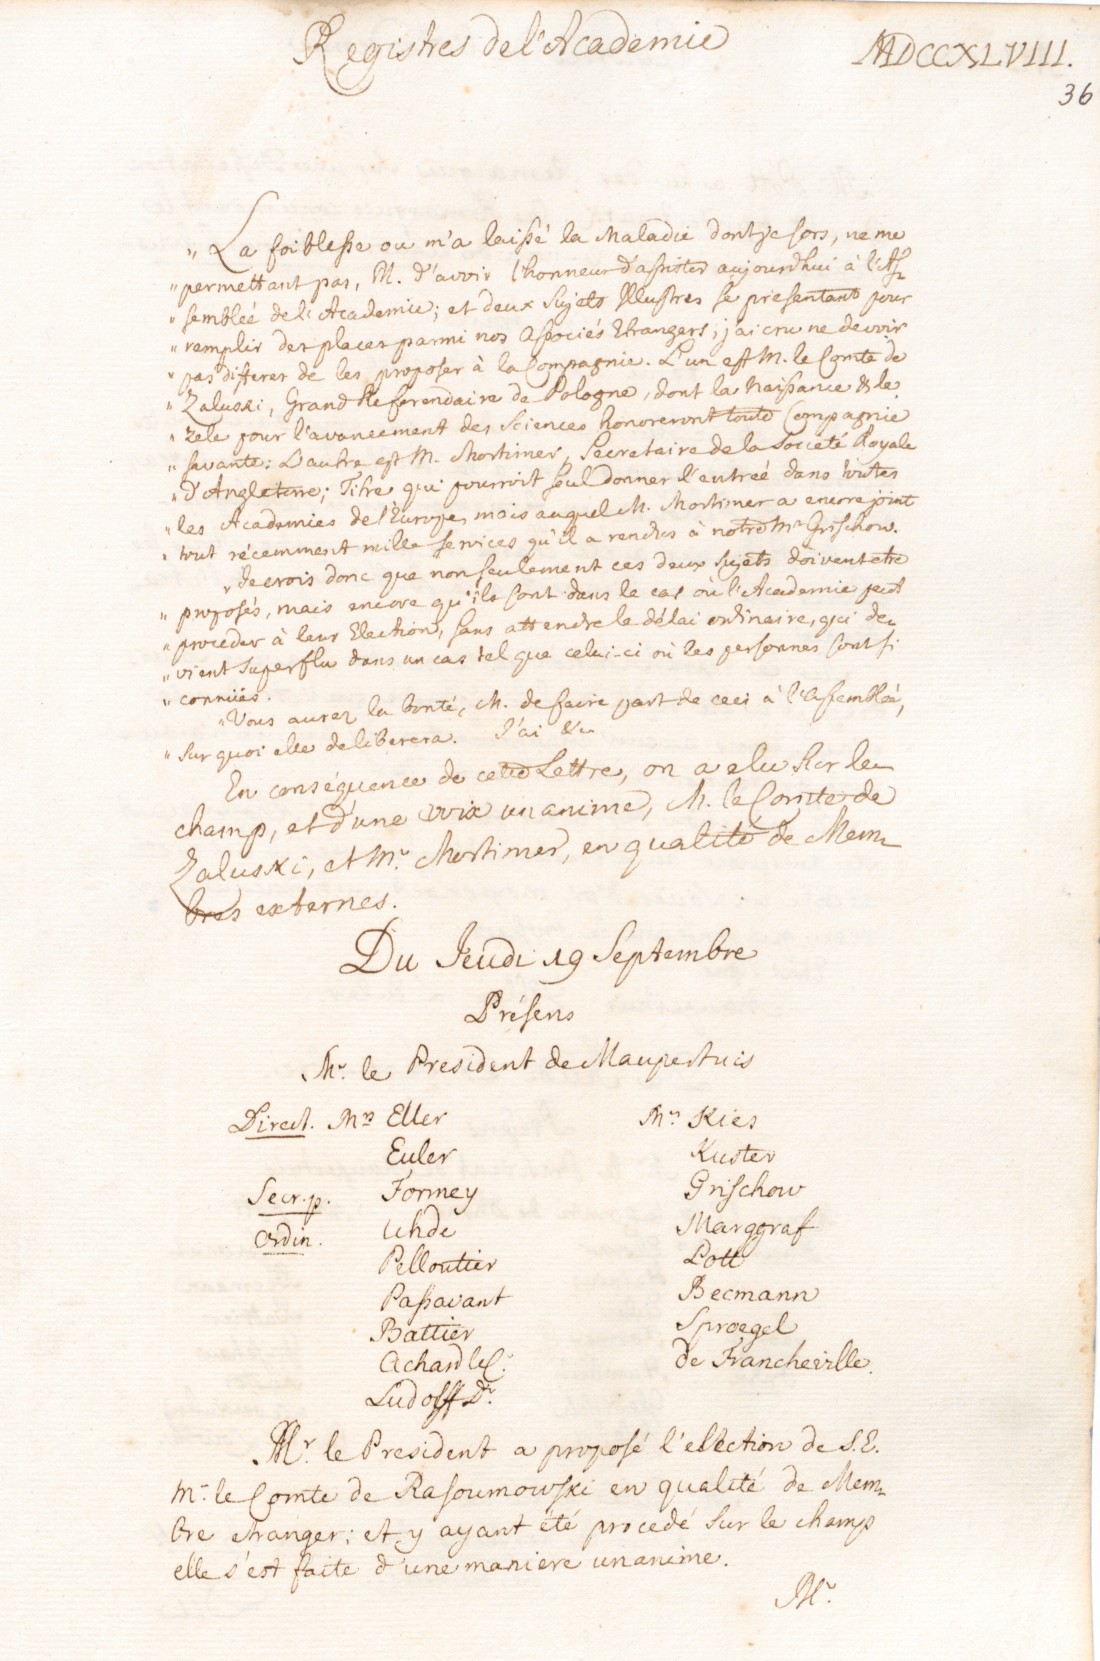 Registres de l'Academie
MDCCXLVIII.
36
„ La foiblesse ou m'a laissé la Maladie dont je sors, ne me
„ permettant pas, M. d'avoir l'honneur d'assister aujourdhui à l'As-
„ semblée de l'Academie; et deux Sujets Illustres se presentant pour
„ remplir des places parmi nos Associés Etrangers; j'ai cru ne devoir
„ pas differer de les proposer à la Compagnie. L'un est M. le Comte de
„ Zaluski, Grand Referendaire de Pologne, dont la Naissance & le
„ zele pour l'avancement des Sciences honoreront toute Compagnie
„ savante: L'autre est M. Mortimer, Secretaire de la Societé Royale
„ d'Angleterre; Titre qui pourroit seul donner l'entreé dans toutes
„ les Academies de l'Europe, mais auquel M. Mortimer a encore joint
„ tout récemment mille services qu'il a rendus à notre Mr Grischow.
„ Je crois donc que non seulement ces deux sujets doivent etre
„ proposés, mais encore qu'ils sont dans le cas où l'Academie peut
„ proceder à leur Election, sans attendre le délai ordinaire, qui de-
„ vient superflu dans un cas tel que celui-ci où les personnes sont si
„ connuës.
„ Vous aurez la bonté, M. de faire part de ceci à l'Assembleé,
„ sur quoi elle deliberera. J'ai &c
En conséquence de cette Lettre, on a elu sur le
champ, et d'une voix unanime, M. le Comte de
Zaluski, et Mr. Mortimer, en qualité de Mem-
bres externes.
Du Jeudi 19 Septembre
Présens
Mr. le President de Maupertuis
Direct. Mrs Eller
Euler
Secr. p. Formey
Ordin. Uhde
Pelloutier
Passavant
Battier
Achard le C.
Ludolff Dr.
Mrs Kies
Kuster
Grischow
Marggraf
Pott
Becmann
Sproegel
de Francheville.
Mr. le President a proposé l'election de S. E.
Mr. le Comte de Rasoumowski en qualité de Mem-
bre etranger; et y ayant été procedé sur le champ
elle s'est faite d'une maniere unanime.
Mr.